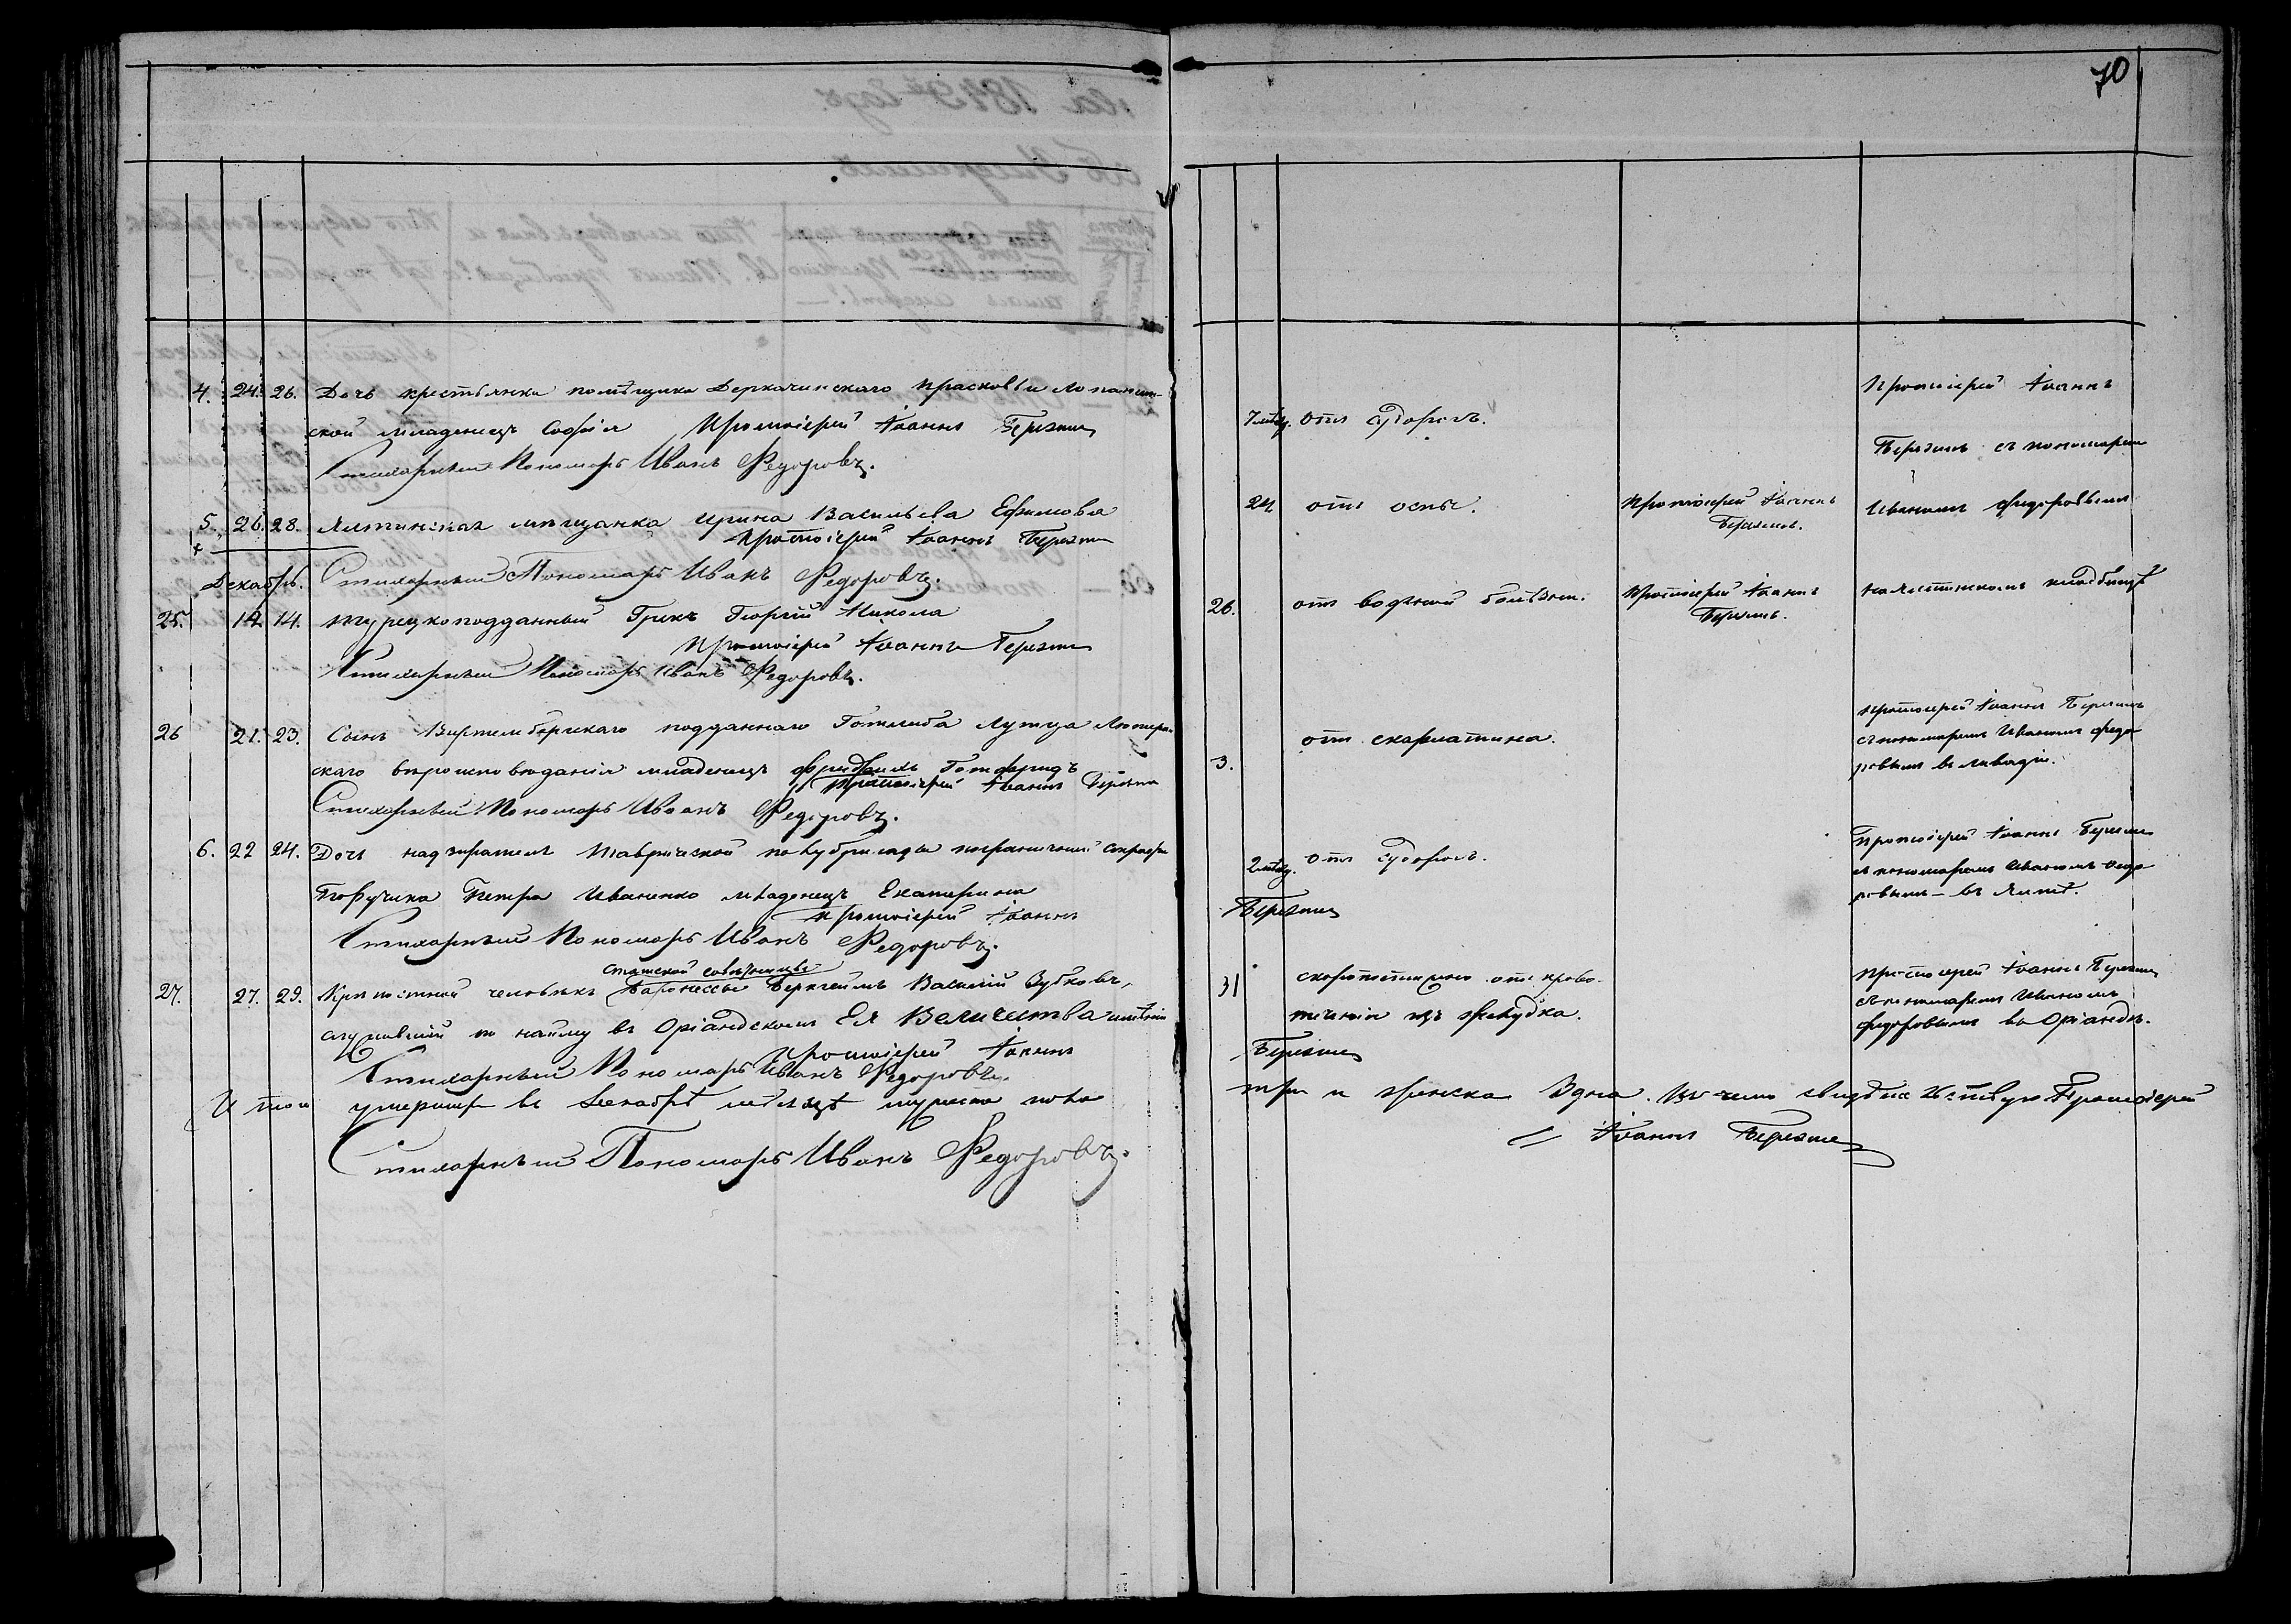 70
4. 24. 26. Дочь крестьянки помѣщика Деркачинскаго Прасковьи
ской младенецъ Софія Протоіерей Іоаннъ Березинъ
Стихарный Пономарь Иванъ Федоровъ.
5. 26. 28. Ялтинская мѣщанка Ирина Васильева Ефимова
Протоіерей Іоаннъ Березинъ
Декабрь. Стихарный Пономарь Иванъ Федоровъ.
25. 12. 14. Турецкоподданный Грекъ Георгій Никола
Протоіерей Іоаннъ Березинъ
Стихарный Пономарь Иванъ Федоровъ.
26 21. 23. Сынъ Виртембергскаго подданнаго Готлиба Лутца Лютеран-
скаго вѣроисповѣданія младенецъ Фридрихъ Готфридъ
Протоіерей Іоаннъ Березинъ
Стихарный Пономарь Иванъ Федоровъ.
6. 22 24. Дочь надзирателя Таврической пограничной стражи
Поручика Петра Иваненко младенецъ Екатерина
Протоіерей Іоаннъ
Стихарный Пономарь Иванъ Федоровъ.
статской совѣтницы
27. 27. 29. Крѣпостный человѣкъ Баронессы Беркгеймъ Василій Зубковъ,
служившій по найму въ Оріандскомъ Ея Величества имѣніи
Протоіерей Іоаннъ
Стихарный Пономарь Иванъ Федоровъ.
Итого умершихъ въ Декабрѣ мѣсяцѣ мужеска пола
Стихарный Пономарь Иванъ Федоровъ.
7 мѣс. отъ судорогъ. Протоіерей Іоаннъ
Березинъ съ пономаремъ
24. отъ оспы. Протоіерей Іоаннъ Иваномъ Федоровымъ
Березинъ.
26. отъ водяной болѣзни. Протоіерей Іоаннъ на Ялтинскомъ кладбищѣ
Березинъ.
Протоіерей Іоаннъ Березинъ
3. отъ скарлатина. съ пономаремъ Иваномъ Федо-
ровымъ въ Ливадіи.
2 мѣс. отъ судорогъ. Протоіерей Іоаннъ Березинъ
съ пономаремъ Иваномъ Федо-
Березинъ ровымъ – въ Ялтѣ.
31 скоропостижно отъ крово- Протоіерей Іоаннъ Березинъ
теченія изъ желудка. съ пономаремъ Иваномъ
Федоровымъ въ Оріандѣ.
Березинъ
три и женска одна. Въ чемъ свидѣтельствую Протоіерей
Іоаннъ Березинъ